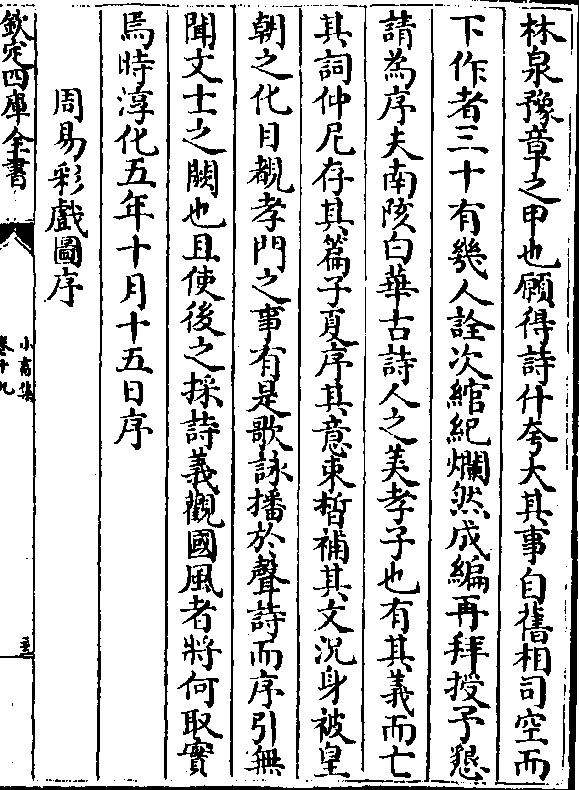 林泉豫章之甲也願得詩什夸大其事自舊相司空而
下作者三十有幾人詮次綰紀爛然成編再拜授予懇
請為序夫南陔白華古詩人之美孝子也有其義而亡
其詞仲尼存其篇子夏序其意束皙補其文況身被皇
朝之化目覩孝門之事有是歌詠播於聲詩而序引無
聞文士之闕也且使後之採詩義觀國風者將何取實
焉時淳化五年十月十五日序
周易彩戲圖序
欽定四庫全書
小畜集
卷十九